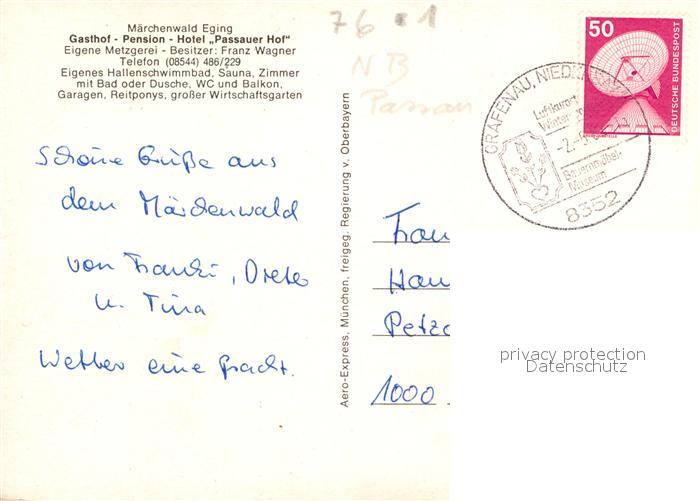 Märchenwald Eging
Gasthof - Pension - Hotel „Passauer Hof"
Eigene Metzgerei - Besitzer: Franz Wagner
Telefon (08544) 486/229
Eigenes Hallenschwimmbad, Sauna, Zimmer
mit Bad oder Dusche, WC und Balkon,
Garagen, Reitponys, großer Wirtschaftsgarten
76 1
NB
Passau
50
DEUTSCHE BUNDESPOST
GRAFENAU,
Luftkurort
Bauernmöbel-
Museum
8352
Schöne Grüße aus
dem Märchenwald
von Franki,
u. Tina
Wetter eine Pracht.
Aero-Express, München, freigeg. Regierung v. Oberbayern
Frau
Han
Petz
1000
privacy protection
Datenschutz